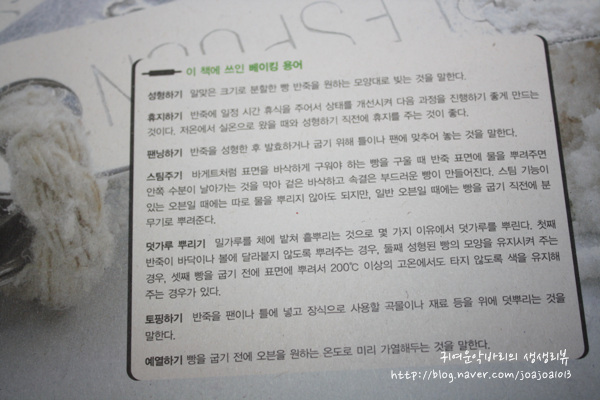 이 책에 쓰인 베이킹 용어
성형하기 알맞은 크기로 분할한 빵 반죽을 원하는 모양대로 빚는 것을 말한다.
휴지하기 반죽에 일정 시간 휴식을 주어서 상태를 개선시켜 다음 과정을 진행하기 좋게 만드는
것이다. 저온에서 실온으로 왔을 때와 성형하기 직전에 휴지를 주는 것이 좋다.
팬닝하기 반죽을 성형한 후 발효하거나 굽기 위해 틀이나 팬에 맞추어 놓는 것을 말한다.
스팀주기 바게트처럼 표면을 바삭하게 구워야 하는 빵을 구울 때 반죽 표면에 물을 뿌려주면
안쪽 수분이 날아가는 것을 막아 겉은 바삭하고 속결은 부드러운 빵이 만들어진다. 스팀 기능이
있는 오븐일 때에는 따로 물을 뿌리지 않아도 되지만, 일반 오븐일 때에는 빵을 굽기 직전에 분
무기로 뿌려준다.
덧가루 뿌리기 밀가루를 체에 밭쳐 흩뿌리는 것으로 몇 가지 이유에서 덧가루를 뿌린다. 첫째
반죽이 바닥이나 볼에 달라붙지 않도록 뿌려주는 경우, 둘째 성형된 빵의 모양을 유지시켜 주는
경우, 셋째 빵을 굽기 전에 표면에 뿌려서 200℃ 이상의 고온에서도 타지 않도록 색을 유지해
주는 경우가 있다.
토핑하기 반죽을 팬이나 틀에 넣고 장식으로 사용할 곡물이나 재료 등을 위에 덧뿌리는 것을
말한다.
예열하기 빵을 굽기 전에 오븐을 원하는 온도로 미리 가열해두는 것을 말한다.
귀여운악바리의 생생리뷰
http://blog.naver.com/joajoa1013